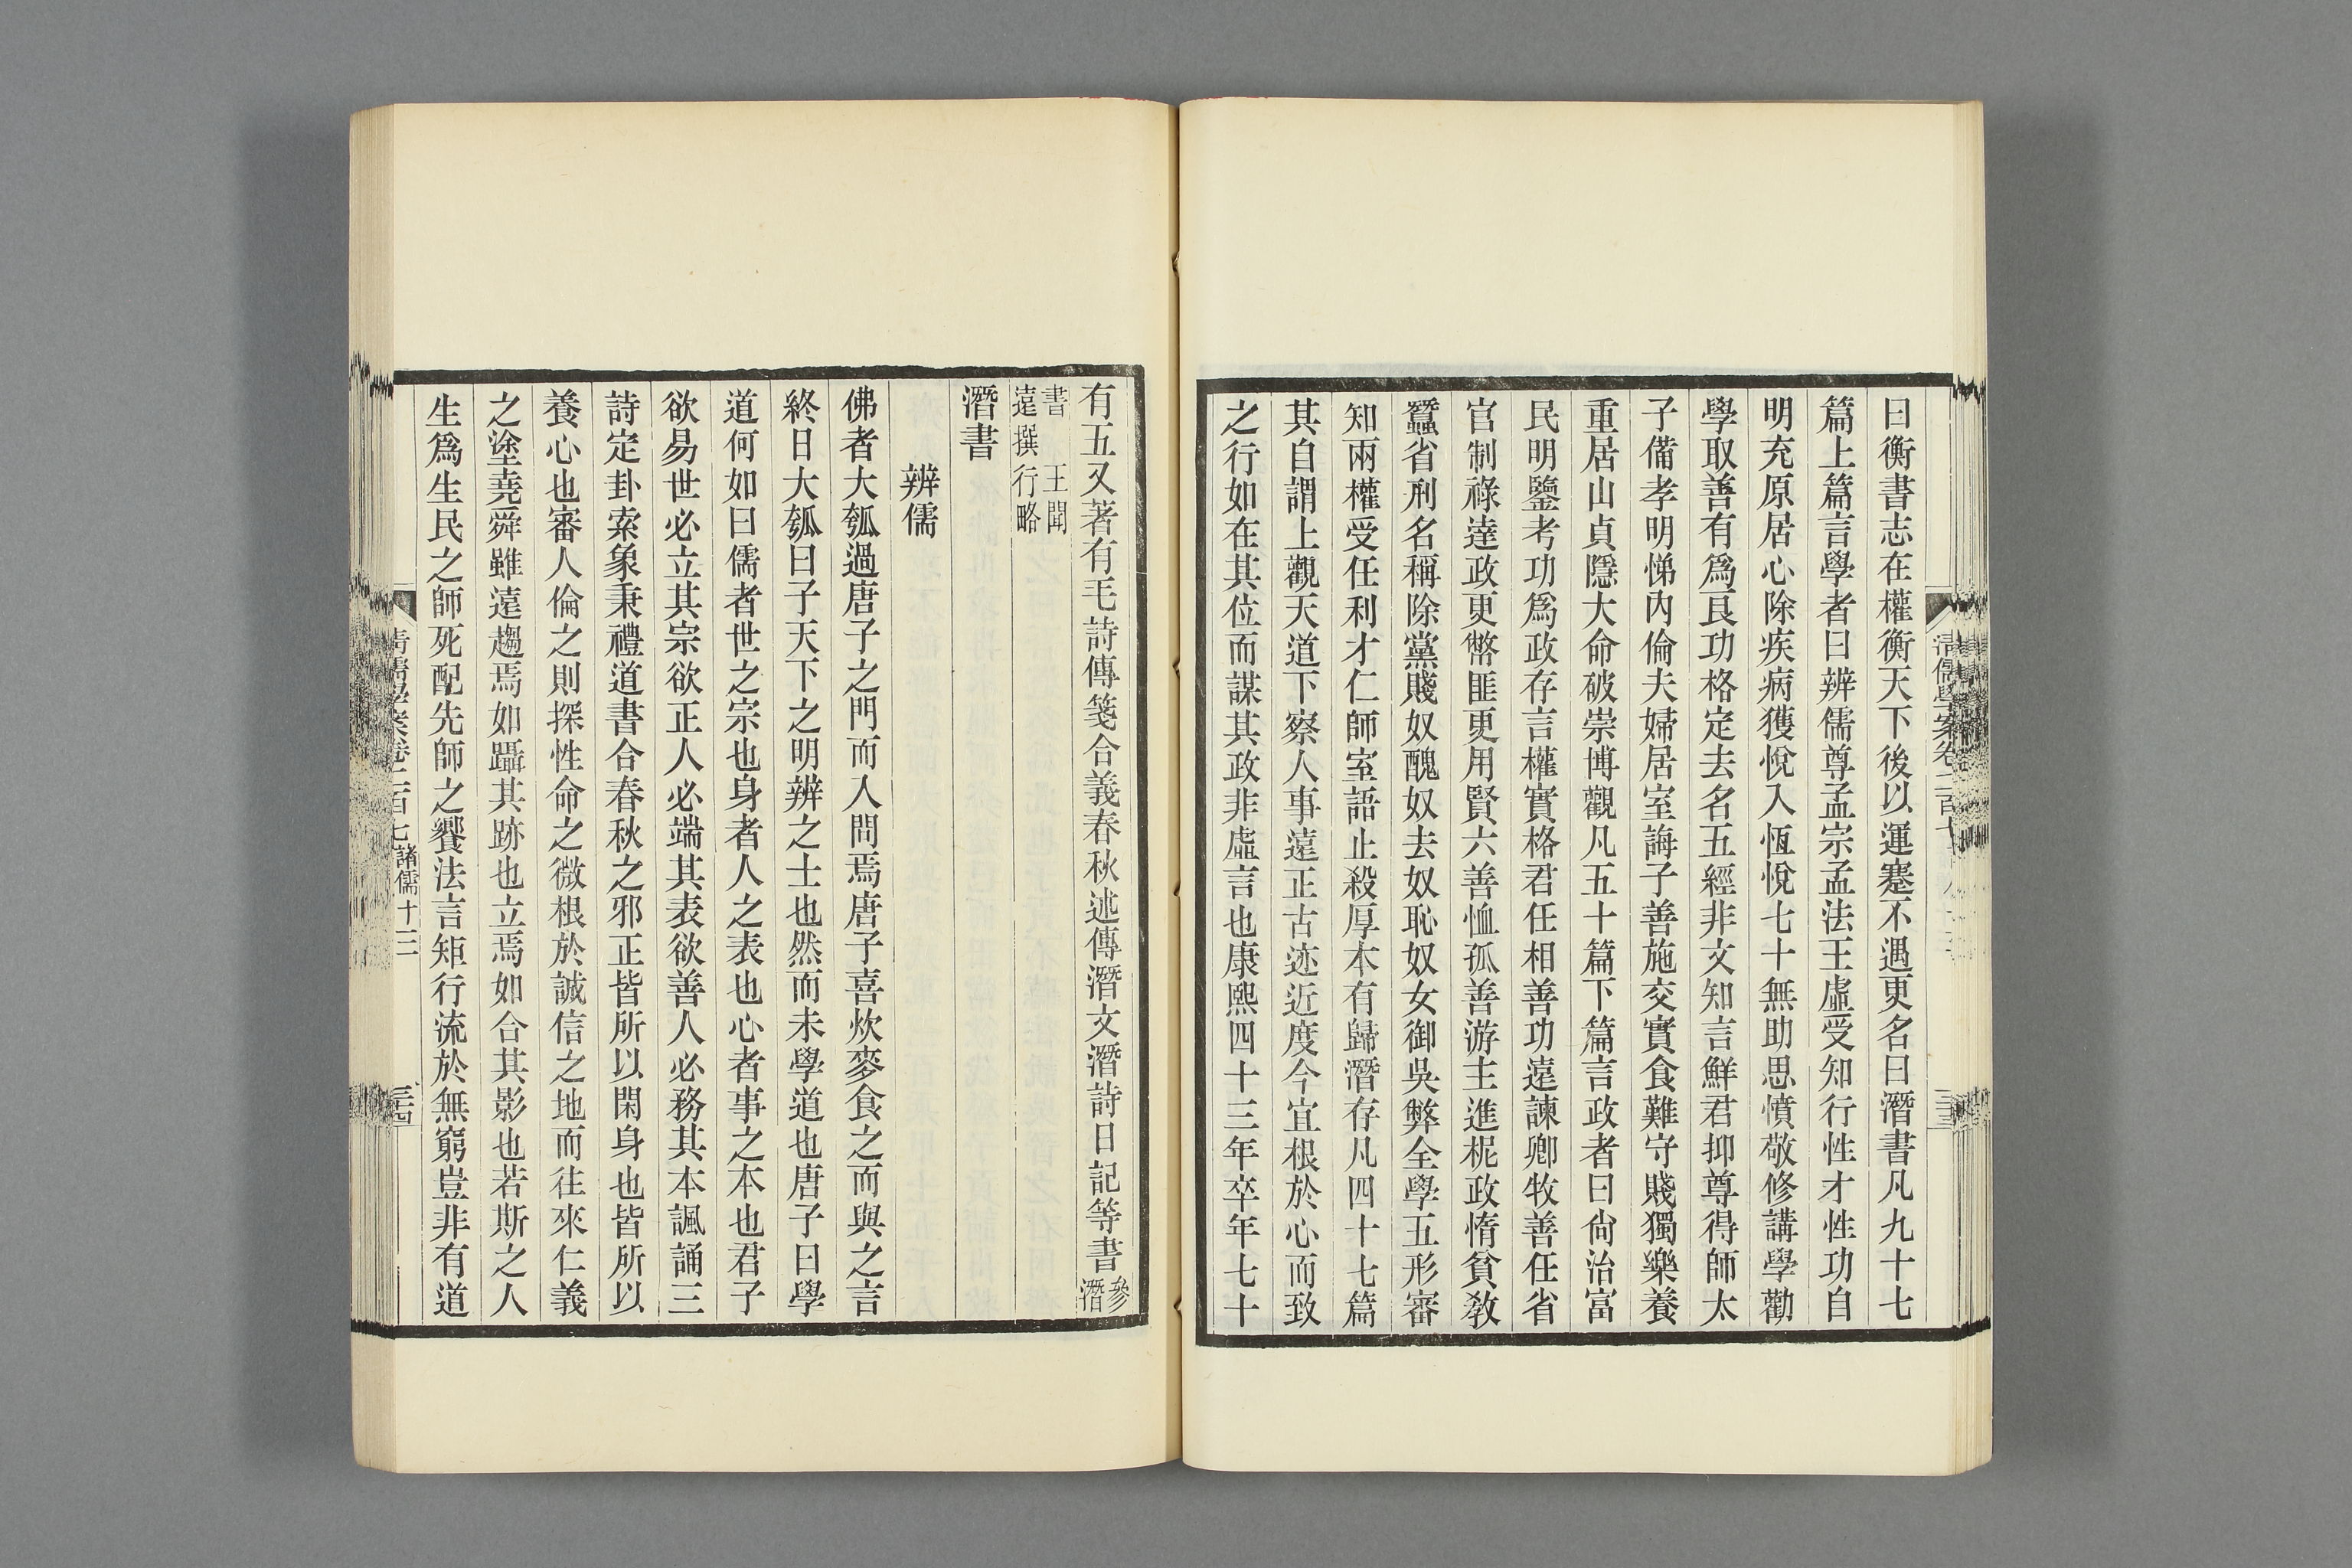 曰衡書志在權衡天下後以運蹇不遇更名曰潛書凡九十七
篇上篇言學者曰辨儒尊孟宗孟法王虛受知行性才性功自
明充原居心除疾病獲悅入恆悅七十無助思憤敬修講學勸
學取善有爲艮功格定去名五經非文知言鮮君抑尊得師太
子備孝明悌內倫夫婦居室誨子善施交實食難守賤獨樂養
重居山貞隱大命破崇博觀凡五十篇下篇言政者曰尙治富
民明鑒考功爲政存言權實格君任相善功遠諫卿牧善任省
官制祿達政更幣匪更用賢六善恤孤善游主進柅政惰貧敎
蠶省刑名稱除黨賤奴醜奴去奴恥奴女御吳弊全學五形審
知兩權受任利才仁師室語止殺厚本有歸潛存凡四十七篇
其自謂上觀天道下察人事遠正古迹近度今宜根於心而致
之行如在其位而謀其政非虛言也康熙四十三年卒年七十
有五又著有毛詩傳箋合義春秋述傳潛文潛詩日記等書參潛
書 王聞
遠撰行略
潛書
辨儒
佛者大瓠過唐子之門而入問焉唐子喜炊麥食之而與之言
終日大瓠曰子天下之明辨之士也然而未學道也唐子曰學
道何如曰儒者世之宗也身者人之表也心者事之本也君子
欲易世必立其宗欲正人必端其表欲善人必務其本諷誦三
詩定卦索象秉禮道書合春秋之邪正皆所以閑身也皆所以
養心也審人倫之則探性命之微根於誠信之地而往來仁義
之塗堯舜雖遠趨焉如躡其跡也立焉如合其影也若斯之人
生爲生民之師死配先師之饗法言矩行流於無窮豈非有道
清儒學案卷二百七 諸儒十三